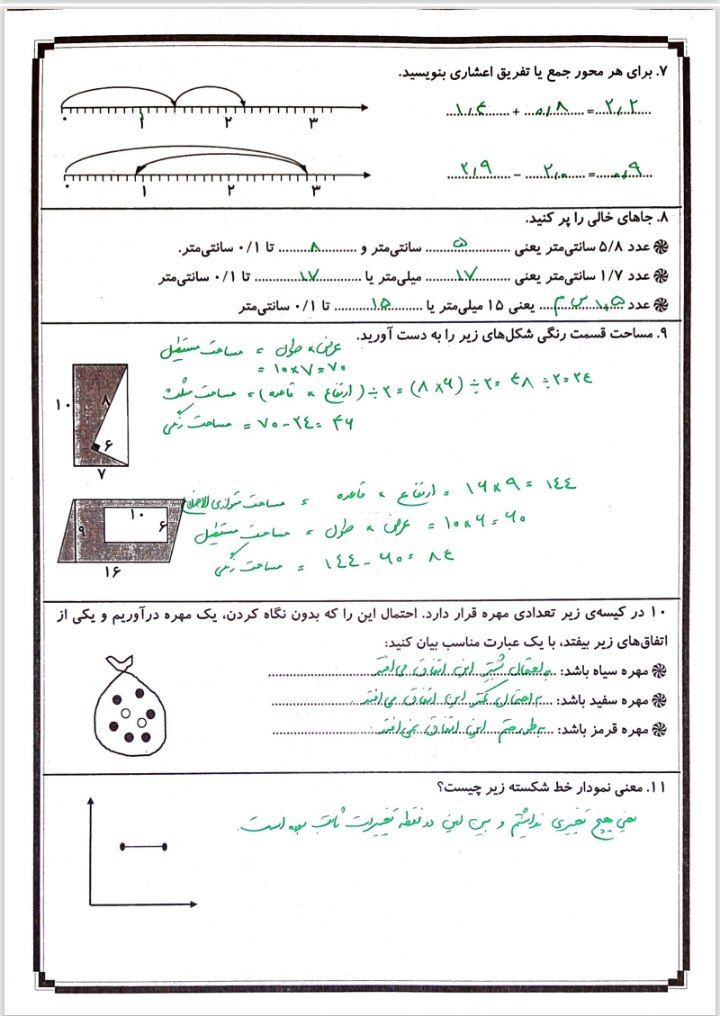 ۷. برای هر محور جمع یا تفریق اعشاری بنویسید.
۰ ۱ ۲ ۳
۱٫۴ + ۰٫۸ = ۲٫۲
۰ ۱ ۲ ۳
۲٫۹ − ۲٫۰ = ۰٫۹
۸. جاهای خالی را پر کنید.
عدد ۵/۸ سانتی‌متر یعنی ۵ سانتی‌متر و ۸ تا ۰/۱ سانتی‌متر.
عدد ۱/۷ سانتی‌متر یعنی ۱۷ میلی‌متر یا ۱۷ تا ۰/۱ سانتی‌متر
عدد ۱٫۵ س م یعنی ۱۵ میلی‌متر یا ۱۵ تا ۰/۱ سانتی‌متر
۹. مساحت قسمت رنگی شکل‌های زیر را به دست آورید.
عرض × طول = مساحت مستطیل
= ۱۰×۷=۷۰
مساحت مثلث = (ارتفاع × قاعده) ÷۲ = (۸×۶) ÷۲= ۴۸ ÷۲=۲۴
مساحت رنگی = ۷۰−۲۴=۴۶
۱۰ ۸ ۶ ۷
مساحت متوازی الاضلاع = ارتفاع × قاعده = ۱۶×۹ = ۱۴۴
مساحت مستطیل = عرض × طول = ۱۰×۶=۶۰
مساحت رنگی = ۱۴۴−۶۰= ۸۴
۱۰ ۶ ۹ ۱۶
۱۰ در کیسه‌ی زیر تعدادی مهره قرار دارد. احتمال این را که بدون نگاه کردن، یک مهره درآوریم و یکی از
اتفاق‌های زیر بیفتد، با یک عبارت مناسب بیان کنید:
مهره سیاه باشد: به احتمال بیشتر این اتفاق می‌افتد
مهره سفید باشد: به احتمال کمتر این اتفاق می‌افتد
مهره قرمز باشد: به طور حتم این اتفاق نمی‌افتد
۱۱. معنی نمودار خط شکسته زیر چیست؟
یعنی هیچ تغییری نداشتیم و بین این دو نقطه تغییرات ثابت بوده است.